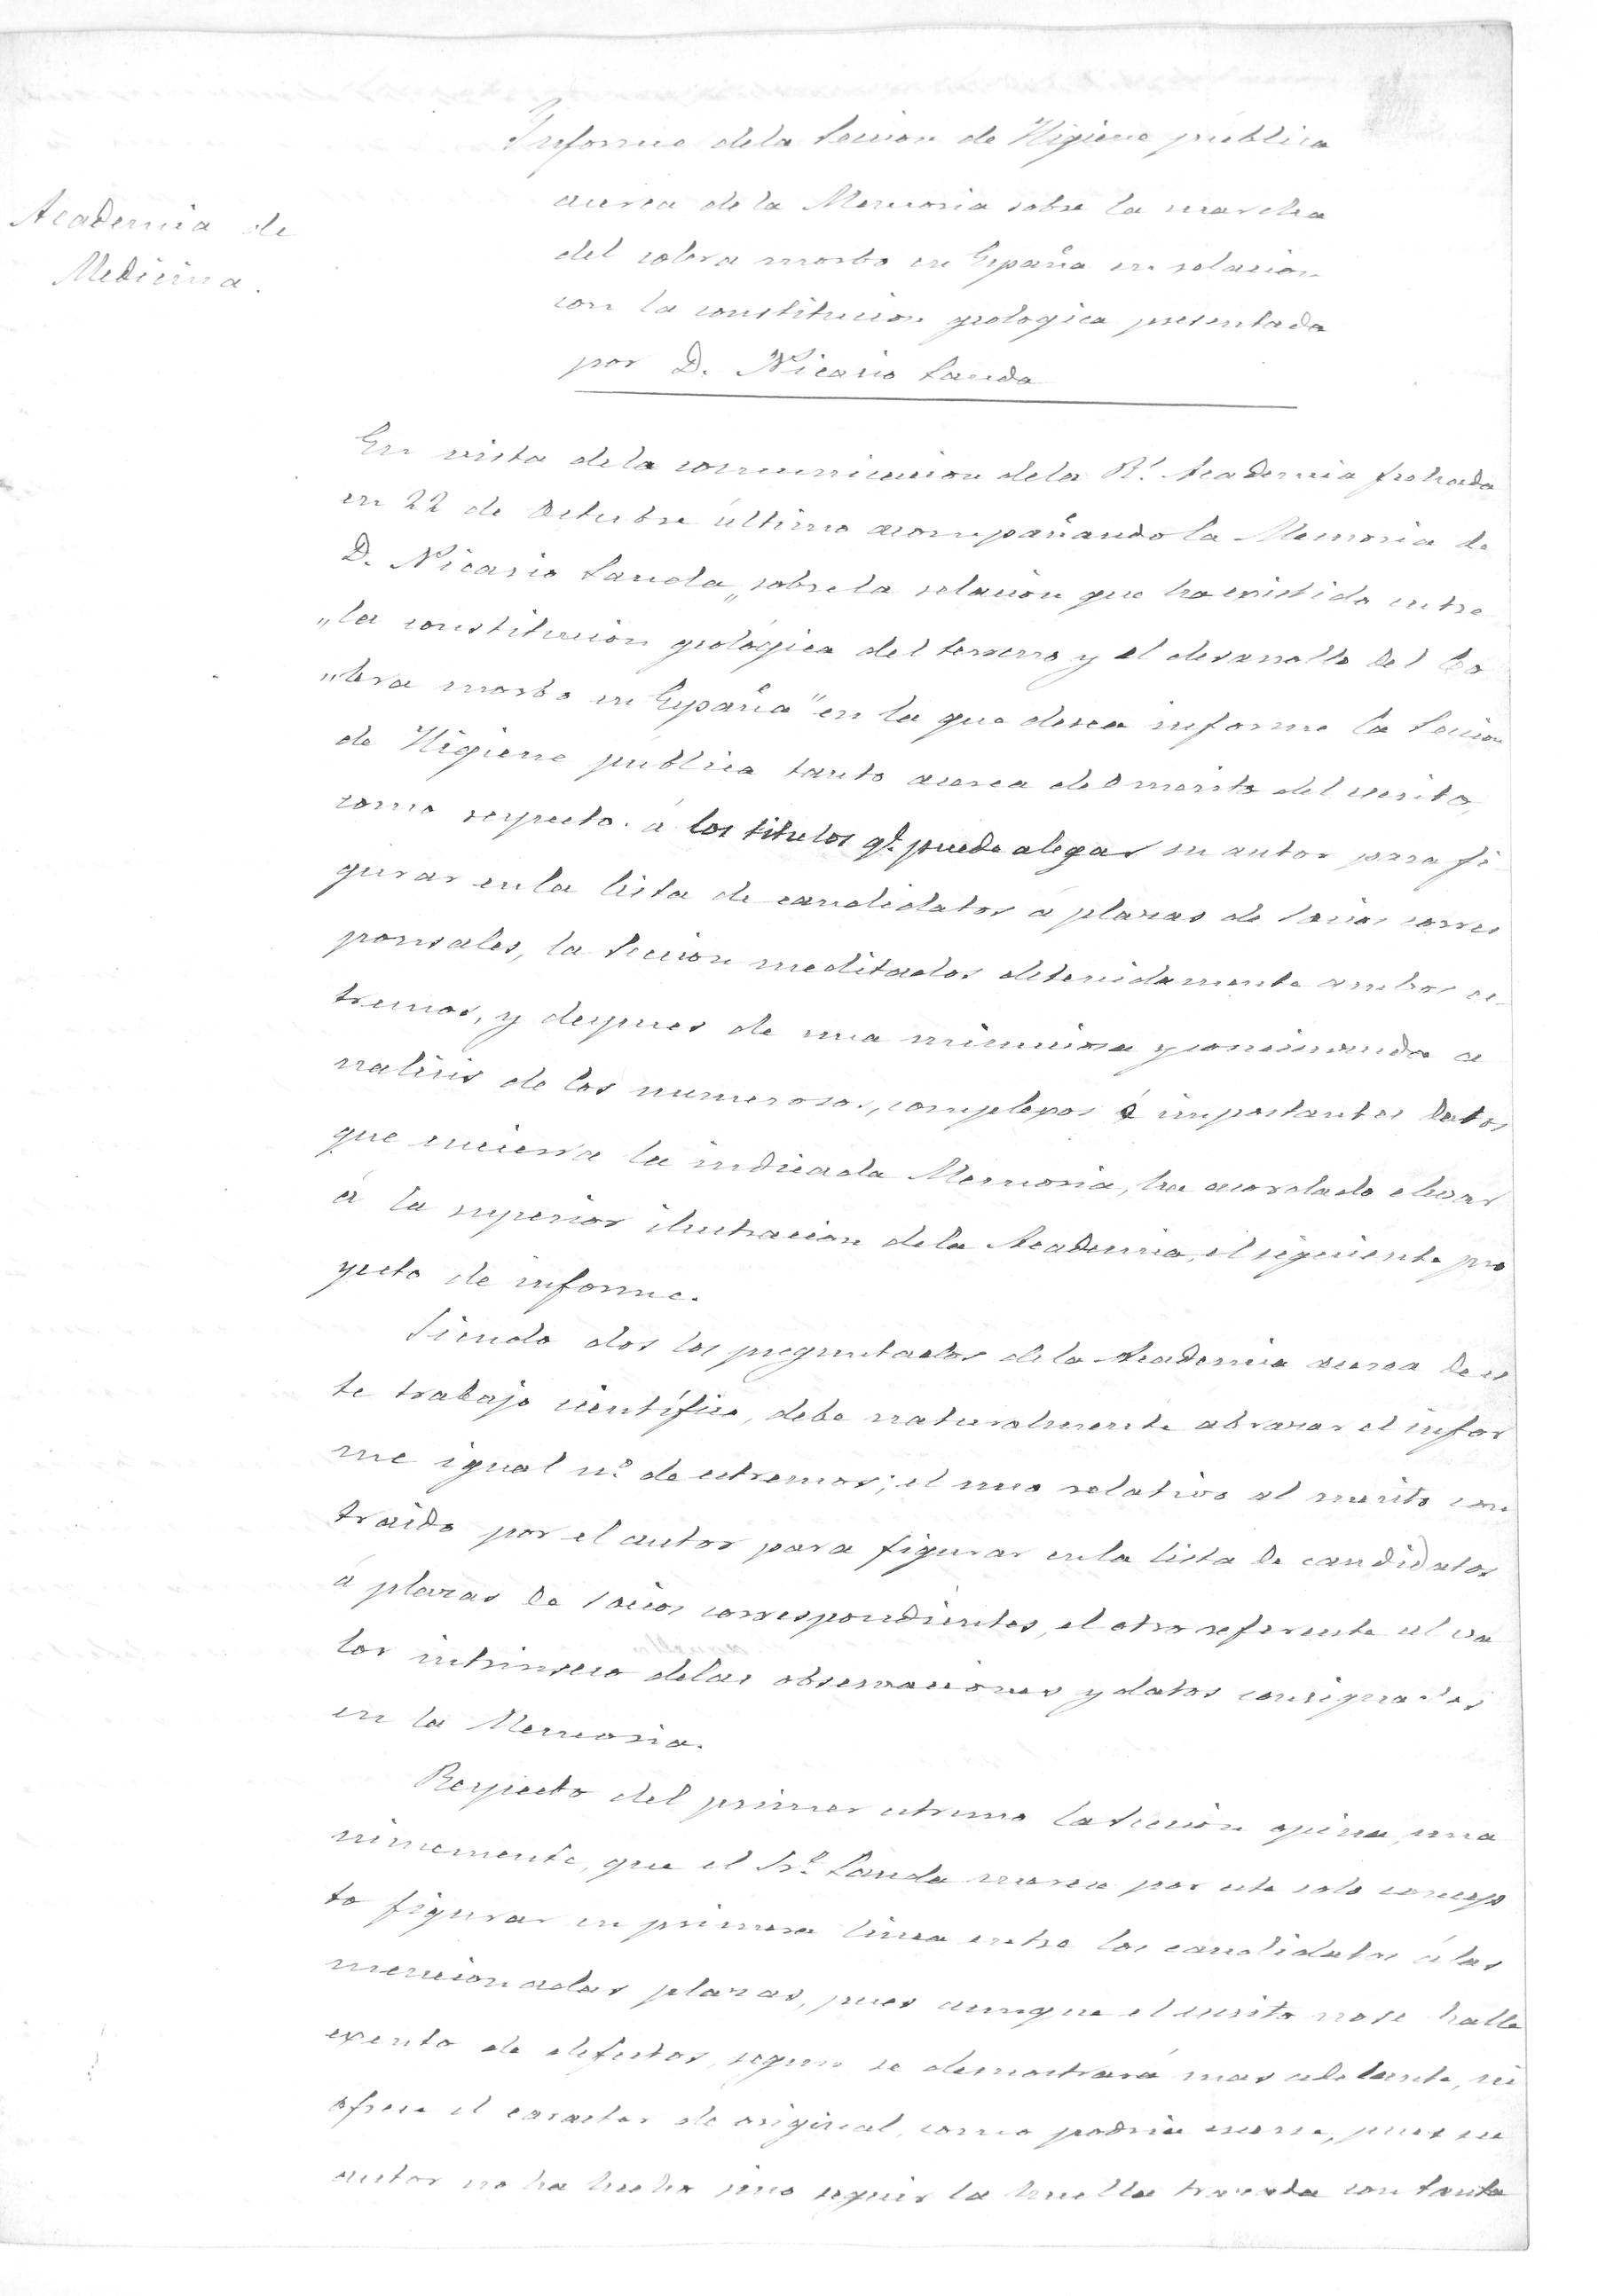 Informe dela Seccion de Higiene pública
acerca de la Memoria sobre la marcha
del colera morbo en España en relacion
con la constitucion geologica presentada
por D. Nicasio Landa
Academia de
Medicina.
En vista dela comunicacion dela Rl. Academia fechada
en 22 de Octubre último acompañando la Memoria de
D. Nicasio Landa „sobre la relacion que ha existido entre
„la constitucion geológica del terreno y el desarrollo del Co
„lera morbo en España" en la que desea informe la Seccion
de Higiene pública tanto acerca del merito del escrito,
como respecto á los titulos qe. puede alegar su autor para fi
gurar en la lista de candidatos á plazas de Socios corres
ponsales, la Seccion meditados detenidamente ambos es
tremos, y despues de una minuciosa y concienzuda a
nalisis de los numerosos, complexos é importantes datos
que encierra la indicada Memoria, ha acordado elevar
á la superior ilustracion dela Academia, el siguiente pro
yecto de informe.
Siendo dos los preguntados dela Academia acerca de es
te trabajo cientifico, debe naturalmente abrazar el infor
me igual no. de estremos; el uno relativo al merito con
traido por el autor para figurar en la lista de candidatos
á plazas de Socios correspondientes, el otro referente al va
lor intrinseco delas observaciones y datos consignados
en la Memoria.
Respecto del primer estremo la Seccion opina, una
nimemente, que el Sr. Landa merece por este solo concep
to figurar en primera linea entre los candidatos á las
mencionadas plazas, pues aunque el escrito no se halle
exento de defectos, segun se demostrará mas adelante, ni
ofrece el caracter de original, como podria creerse, pues su
autor no ha hecho sino seguir la huella trazada con tanta